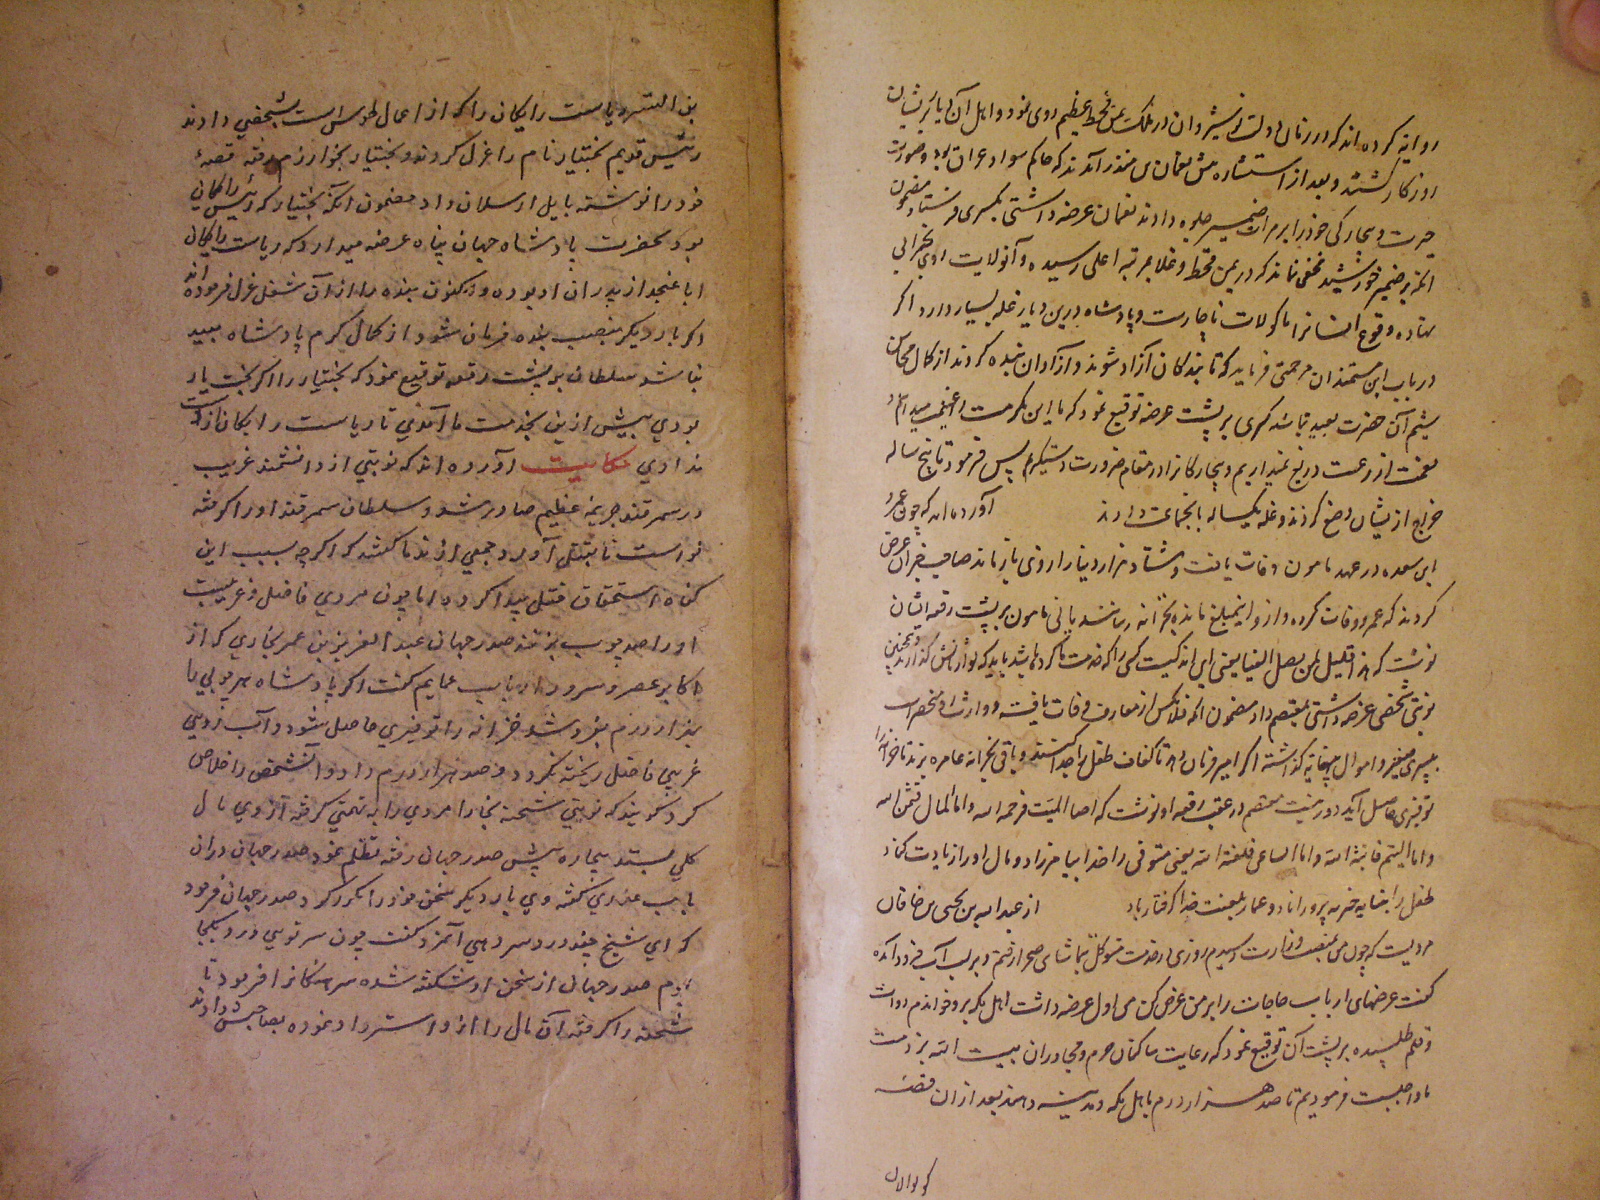 روایه کرده اند که در زمان دولت نوشیروان در ملک یمن قحط عظیم روی نمود و اهل آن دیار پریشان
روزکار کشتند و بعد از استشاره پیش نعمان بن منذر آمدند که حاکم سواد عراق بود و صورت
حیرت و بیچارکی خود را بر مرات ضمیر جلوه دادند نعمان عرضه داشتی بکسری فرستاد مضمون
انکه بر ضمیر خورشید مخفی نماند که در یمن قحط و غلا بمرتبه اعلی رسیده و آن ولایت روی بخرابی
نهاده وقوع انسانرا ماکولات ناچارست و پادشاه درین دیار غله بسیار دارد اکر
در باب این مستمندان مرحمتی فرماید که تا بندکان آزاد شوند و آزادان بنده کردند از کمال محاسن
شیم آن حضرت بعید نباشد کسری بر پشت عرضه توقیع نمود که ما این مکرمت را غنیمت میدانیم و
نعمت از رعیت دریغ نمیداریم و بیچارکانرا در مقام ضرورت دستکیریم پس فرمود تا پنج ساله
خراج از یشان وضع کردند و غله یکساله بانجماعت دادند آورده اند که چون عمرو
ابن سعده در عهد مامون وفات یافت و هشتاد هزار دینار از وی باز ماند صاحب خبران عرض
کردند که عمرو وفات کرده و از و این مبلغ مانده بخزانه رسانند یا نی مامون بر پشت رقعه ایشان
نوشت که هذا قلیل لمن یصل الینا یعنی این اندکیست کسی را که خدمت ما کرده باشد باید که بوارثانش کذارند و همچنین
نوبتی شخصی عرضه داشتی بمعتصم داد مضمون انکه فلانکس از معارف وفات یافته و وارث او منحصر است
بپسری صغیر و اموال بینهایه کذاشته اکر امیر فرمان دهد تا کفاف طفل جدا کنند و باقی بخزانه عامره برند تا خزانه را
توفیری حاصل آید در وقت معتصم در عقب رقعه او نوشت که اما المیت فرحمه الله و اما المال فثمره الله
و اما الیتیم فانبته الله و اما الساعی فلعنه الله یعنی متوفی را خدا بیامرزاد و مال او را زیادت کناد
طفل را بعنایه خود بپروراناد و غماز بلعنت خدا کرفتار باد از عبد الله بن یحیی بن خاقان
مرویست که چون من بمنصب وزارت رسیدم روزی در خدمت متوکل بتماشای صحرا رفتم و بر لب آب فرود آمده
کفت عرضهای ارباب حاجات را بر من عرض کن من اول عرضه داشت اهل مکه بر و خواندم دوات
و قلم طلبیده بر پشت آن توقیع نمود که رعایت ساکنان حرم و مجاوران بیت الله بر ذمت
ما واجبست فرمودیم تا صد هزار درم باهل مکه و مدینه دهند بعد از ان قصه
کوتوالان
ریاست رایکان را که از اعمال طوس است بشخصی دادند
رئیس قدیم بختیار نام را عزل کردند و بختیار بخوارزم رفته قصه
خود را نوشته بایل ارسلان داد مضمون انکه بختیار که رئیس رایکانی
بود بحضرت پادشاه جهان پناه عرضه میدارد که ریاست رایکان
ابا عنجد از پدران او بوده و اکنون بنده را از آن شغل عزل فرموده اند
اکر بار دیکر منصب بنده فرمان شود از کمال کرم پادشاه بعید
نباشد سلطان بر پشت رقعه توقیع نمود که بختیار را اکر بخت یار
بودی پیش ازین بخدمت ما آمدی تا ریاست رایکان از دست
ندادی حکایت آورده اند که نوبتی از دانشمند غریب
در سمرقند جریمه عظیم صادر شد و سلطان سمرقند او را کرفته
خواست تا بقتل آورد جمعی از ندما کفتند که اکرچه بسبب این
کناه استحقاق قتل پیدا کرده اما چون مردی فاضل و غریبست
او را صد چوب بزنند صدر جهان عبد العزیز بن عمر بخاری که از
اکابر عصر و سرور ارباب عمایم کفت اکر پادشاه هر چوبی را
بهزار درم بفروشد خزانه را توفیری حاصل شود و آب روی
غریبی فاضل ریخته نکردد و صد هزار درم داد و آنشخص را خلاص
کرد کویند که نوبتی شحنه بخارا مردی را به تهمتی کرفته از وی مال
کلی بستد بیچاره پیش صدر جهان رفته تظلم نمود صدر جهان دران
باب عذری کفته وی بار دیکر سخن خود را مکرر کرد صدر جهان فرمود
که ای شیخ چند درد سر دهی آنمرد کفت چون سر تویی درد بکجا
برم صدر جهان از سخن او شکفته شده سرهنکانرا فرمود تا
شحنه را کرفته آن مال را از و استرداد نموده بصاحبش دادند